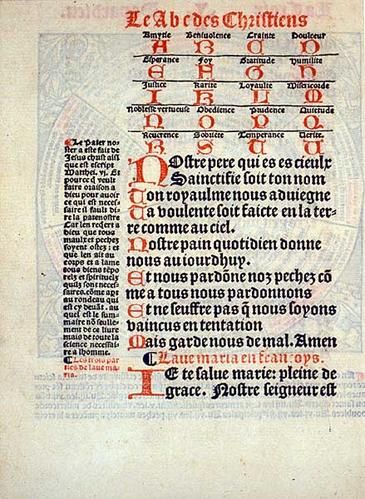 Le A b c des Christiens
Amytie Benivolence Crainte Doulceur
A B C D
Esperance Foy Gratitude Humilite
E F G H
Justice Karite Loyaulte Misericorde
I K L M
Noblesse vertueuse Obedience Prudence Quietite
N O P Q
Reverence Sobriete Temperance Verite.
R S T U
Le Pater no-
ster a este fait de
Jesus christ aisi
que est escript
Mathei. vj. Et
pource q̃ veult
faire oraison a
dieu pour avoir
ce qui est neces-
saire il fault di-
re la patenostre
Car len reqert a
dieu que tous
maulx et pechez
soyent ostez: et
que len ait au
corps et a lame
tous biens tẽpo
relz et spirituelz
quilz sont neces-
saires. cõme aps
au rondeau qui
est cy devãt. au
quel est le sum-
maire nõ seulle-
ment de ce livre
mais de toute la
science necessai-
re a lhomme.
Les trois par
ties de lave ma-
ria.
NOstre pere qui es es cieulx
Sainctifie soit ton nom
Ton royaulme nous aduiegne
Ta voulente soit faicte en la ter-
re comme au ciel.
Nostre pain quotidien donne
nous au iourdhuy.
Et nous pardõne noz pechez cõ
me a tous nous pardonnons
Et ne seuffre pas q̃ nous soyons
vaincus en tentation
Mais garde nous de mal. Amen
Lave maria en francoys.
IE te salue marie: pleine de
grace. Nostre seigneur est